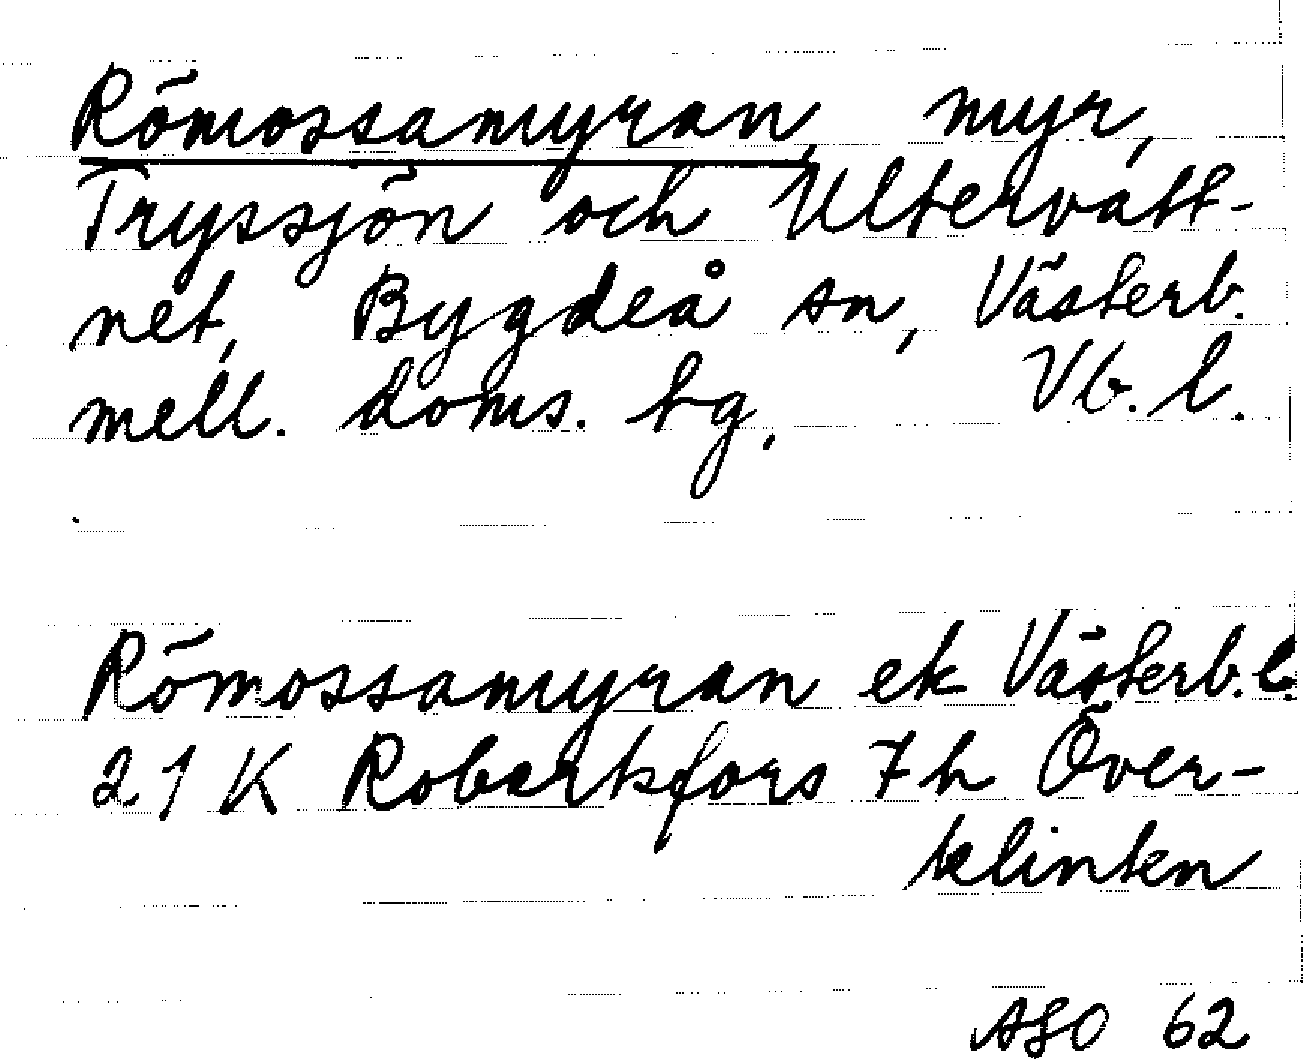 Römossamyran, myr,
Tryssjön och Ultervatt-
net, Bygdeå sn, Västerb.
mell. doms. tg. Vb. l.
Römossamyran ek Västerb. l.
21 K Robertsfors 7h Över-
klinten
ASO 62